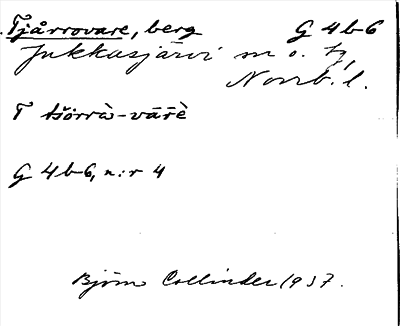 Tjårrovare, berg G 4b6
Jukkasjärvi sn o. tg,
Norrb. l.
T tšŏrrà-vārè
G 4b6, n:r 4
Björn Collinder 1937.